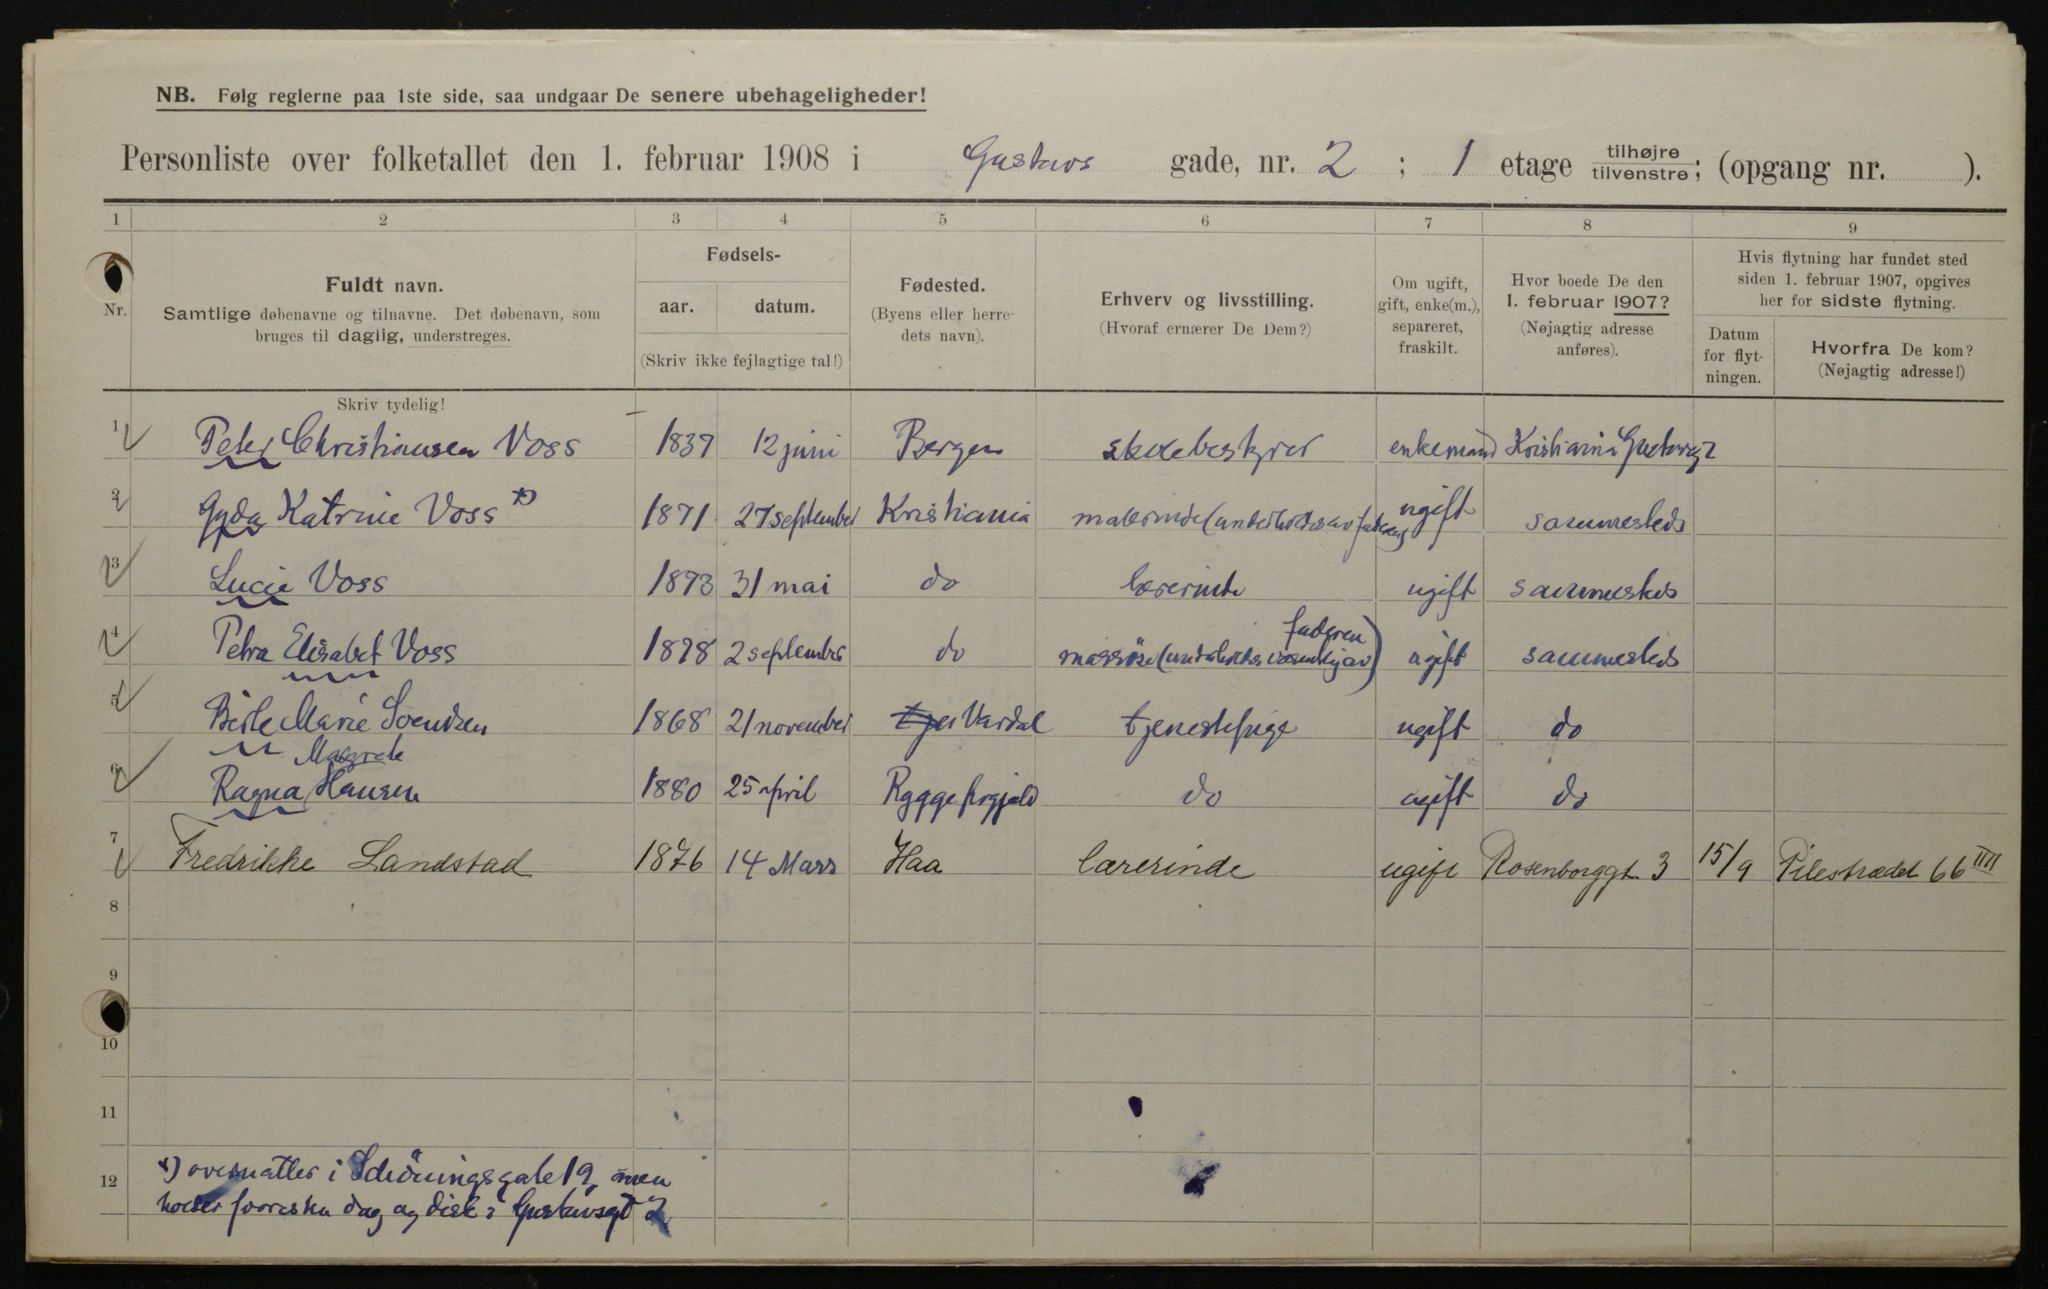 NB. Følg reglerne paa 1ste side, saa undgaar De senere ubehageligheder!
Personliste over folketallet den 1. februar 1908 i Gustavs gade, nr. 2 ; 1 etage tilhøjre tilvenstre; (opgang nr. ).
1 2 3 4 5 6 7 8 9
Nr.
Fuldt navn.
Samtlige døbenavne og tilnavne. Det døbenavn, som
bruges til daglig, understreges.
Skriv tydelig!
Fødsels-
aar. datum.
(Skriv ikke fejlagtige tal!)
Fødested.
(Byens eller herre-
dets navn).
Erhverv og livsstilling.
(Hvoraf ernærer De Dem?)
Om ugift,
gift, enke(m.),
separeret,
fraskilt.
Hvor boede De den
1. februar 1907?
(Nøjagtig adresse
anføres).
Hvis flytning har fundet sted
siden 1. februar 1907, opgives
her for sidste flytning.
Datum
for flyt-
ningen.
Hvorfra De kom?
(Nøjagtig adresse!)
1 Peter Christiansen Voss 1837 12 juni Bergen skolebestyrer enkemand Kristiania Gustavsg 2
2 Gyda Katrine Voss *) 1871 27 september Kristiania malerinde (underholdes av faderen) ugift sammesteds
3 Lucie Voss 1873 31 mai do lærerinde ugift sammesteds
4 Petra Elisabet Voss 1878 2 september do massöse (underholdes væsentlig av faderen) ugift sammesteds
5 Berte Marie Svendsen 1868 21 november Vardal tjenestepige ugift do
Margrete
6 Ragna Hansen 1880 25 april Rygge prgjæld do ugift do
7 Fredrikke Landstad 1876 14 Mars Haa lærerinde ugift Rosenborggt. 3 15/9 Pilestrædet 66 IIII
8
9
10
11
12
*) overnatter i Schöningsgate 19, men
holder forresten dag og disk i Gustavsgt 2